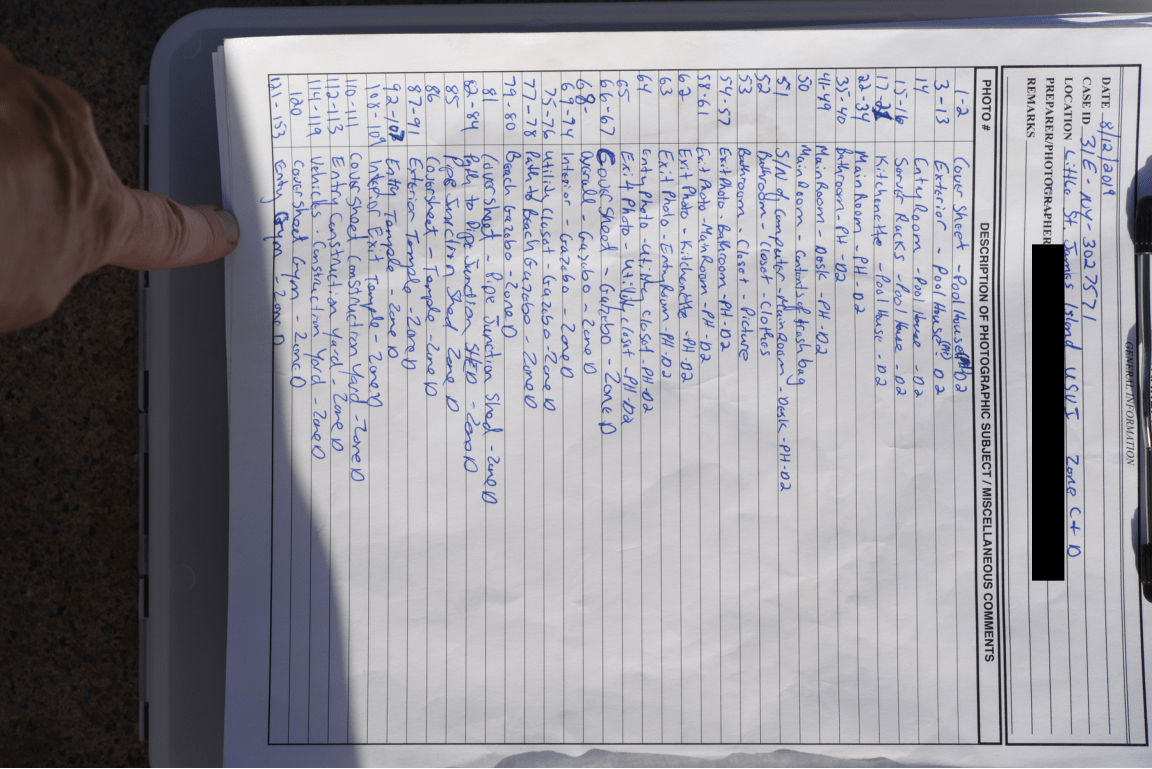 GENERAL INFORMATION
DATE 8/12/2019
CASE ID 31E-NY-3027571
LOCATION Little St. James Island USVI Zone C+D
PREPARER/PHOTOGRAPHER
REMARKS
PHOTO # DESCRIPTION OF PHOTOGRAPHIC SUBJECT / MISCELLANEOUS COMMENTS
1-2 Cover Sheet - Pool House (PH) D2
3-13 Exterior - Pool House (PH) - D2
14 Entry Room - Pool House - D2
15-16 Server Racks - Pool House - D2
17-21 Kitchenette - Pool House - D2
22-34 Main Room - PH - D2
35-40 Bathroom - PH - D2
41-49 Main Room - Desk - PH-D2
50 Main Room - Contents of trash bag
51 S/N of Computer - Main Room - Desk - PH-D2
52 Bathroom - Closet - Clothes
53 Bathroom - Closet - Picture
54-57 Exit Photo - Bathroom - PH-D2
58-61 Exit Photo - Main Room - PH-D2
62 Exit Photo - Kitchenette - PH-D2
63 Exit Photo - Entry Room - PH-D2
64 Entry Photo - Utility Closet PH-D2
65 Exit Photo - Utility Closet - PH-D2
66-67 Cover Sheet - Gazebo - Zone D
68- Overall - Gazebo - Zone D
69-74 Interior - Gazebo - Zone D
75-76 Utility Closet - Gazebo - Zone D
77-78 Path to Beach Gazebo - Zone D
79-80 Beach Gazebo - Zone D
81 Cover Sheet - Pipe Junction Shed - Zone D
82-84 Path to Pipe Junction SHED - Zone D
85 Pipe Junction Shed Zone D
86 Coversheet Temple - Zone D
87-91 Exterior Temple - Zone D
92-107 Enter Temple - Zone D
108-109 Interior Exit Temple - Zone D
110-111 Cover Sheet Construction Yard - Zone D
112-113 Entry Construction Yard - Zone D
114-119 Vehicles - Construction Yard - Zone D
120 Cover Sheet Gym - Zone D
121-133 Entry Gym - Zone D